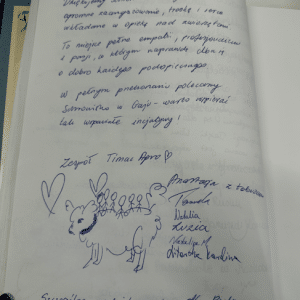 ogromne zaangażowanie, troskę i serce
wkładane w opiekę nad zwierzętami.
To miejsce pełne empatii, profesjonalizmu
i pasji, w którym naprawdę dba się
o dobro każdego podopiecznego.
W pełnym przekonaniu polecamy
Schronisko w Gaju - warto wspierać
tak wspaniałe inicjatywy!
Zespół Timac Agro
Tomek
Natalia
Luzia
Natalia M.
Karolina